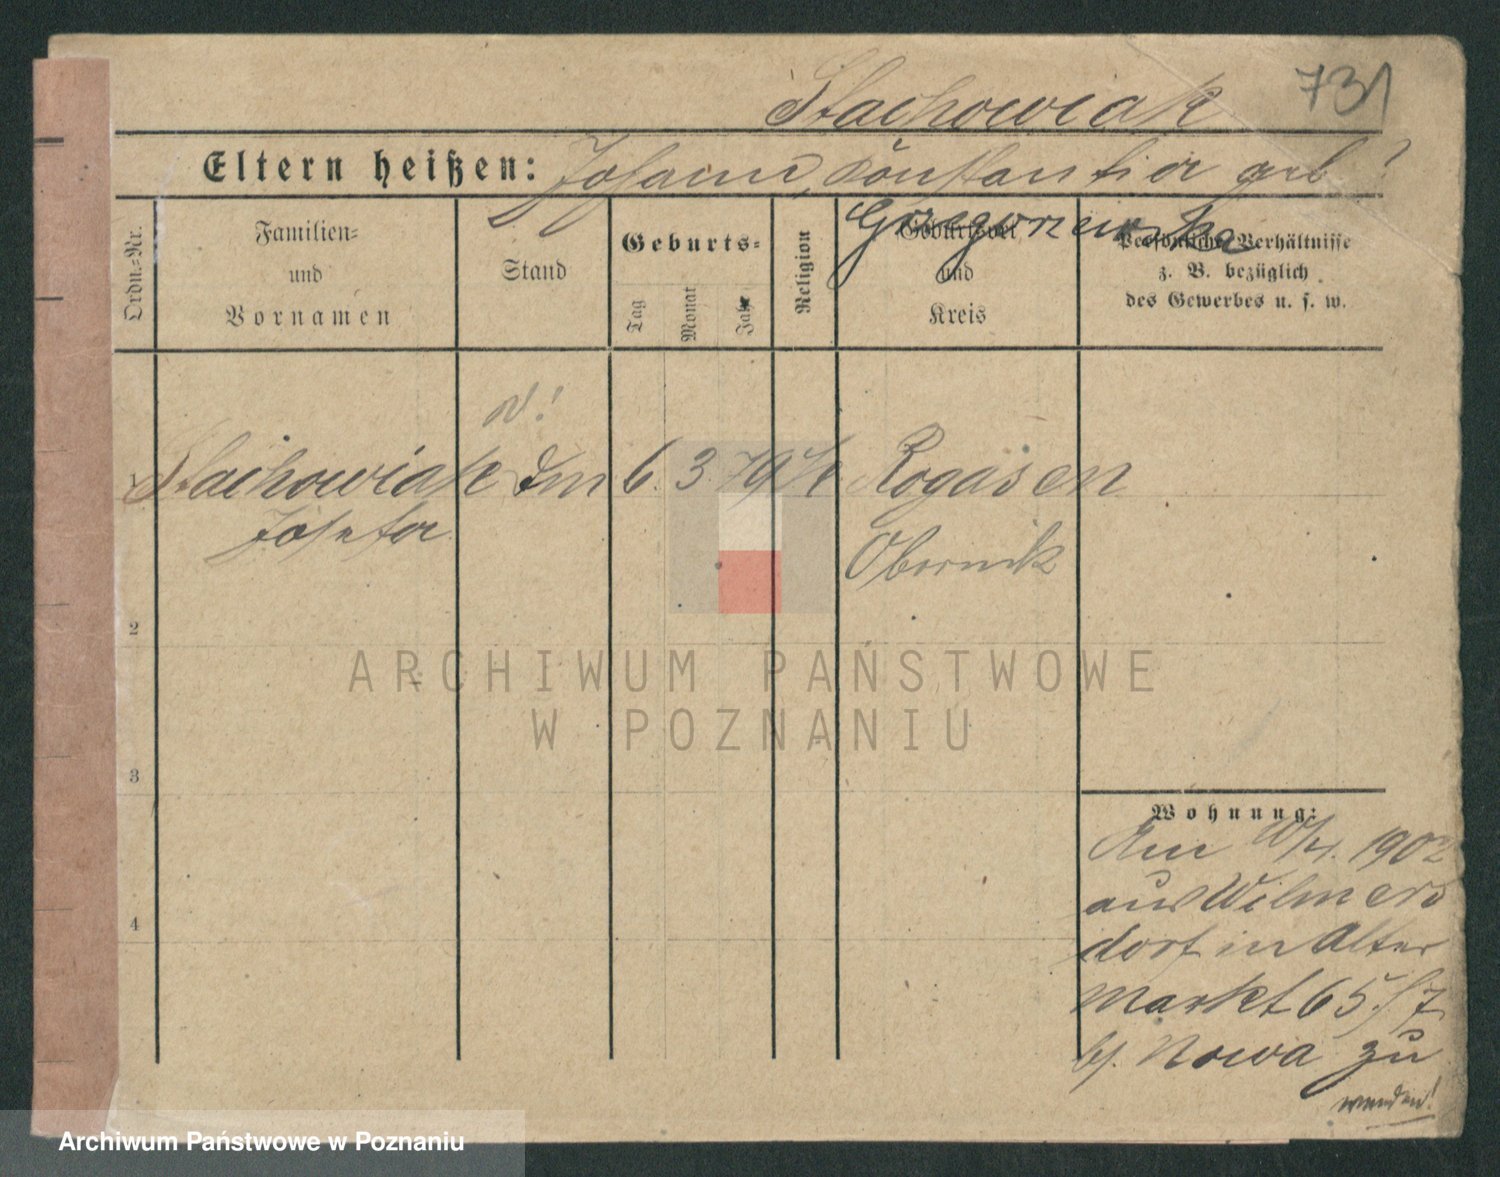 Stachowiak 731
Eltern heißen: Johann, Konstantia geb?
Grzegorzewska
Ordn.-Nr.
Familien-
und
Vornamen
Stand
Geburts-
Tag
Monat
Jahr
Religion
Geburtsort
und
Kreis
Persönliche Verhältnisse
z. B. bezüglich
des Gewerbes u. s. w.
1 Stachowiak 6. 3. 79 k Rogasen
Josefa Obornik
2
3
4
ARCHIWUM PAŃSTWOWE
W POZNANIU
Wohnung:
Am 1902
aus Wilmers
dorf in Alter
Markt 65/7
bj. Nowa zu
wenden!
Archiwum Państwowe w Poznaniu